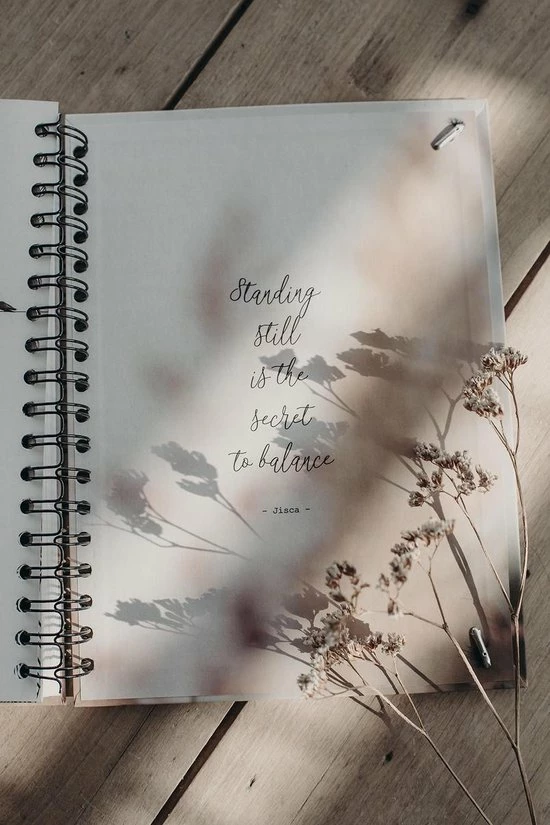 Standing
still
is the
secret
to balance
- Jisca -